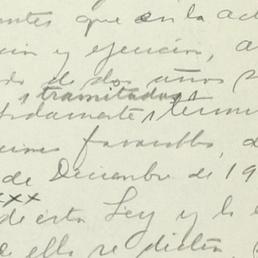 antes que en la act
ción y ejecución, a
do de dos años s
tramitados
damente y term
ciones favorables, d
de Diciembre de 19
xxx
de esta Ley y lo
e ella se dicten,